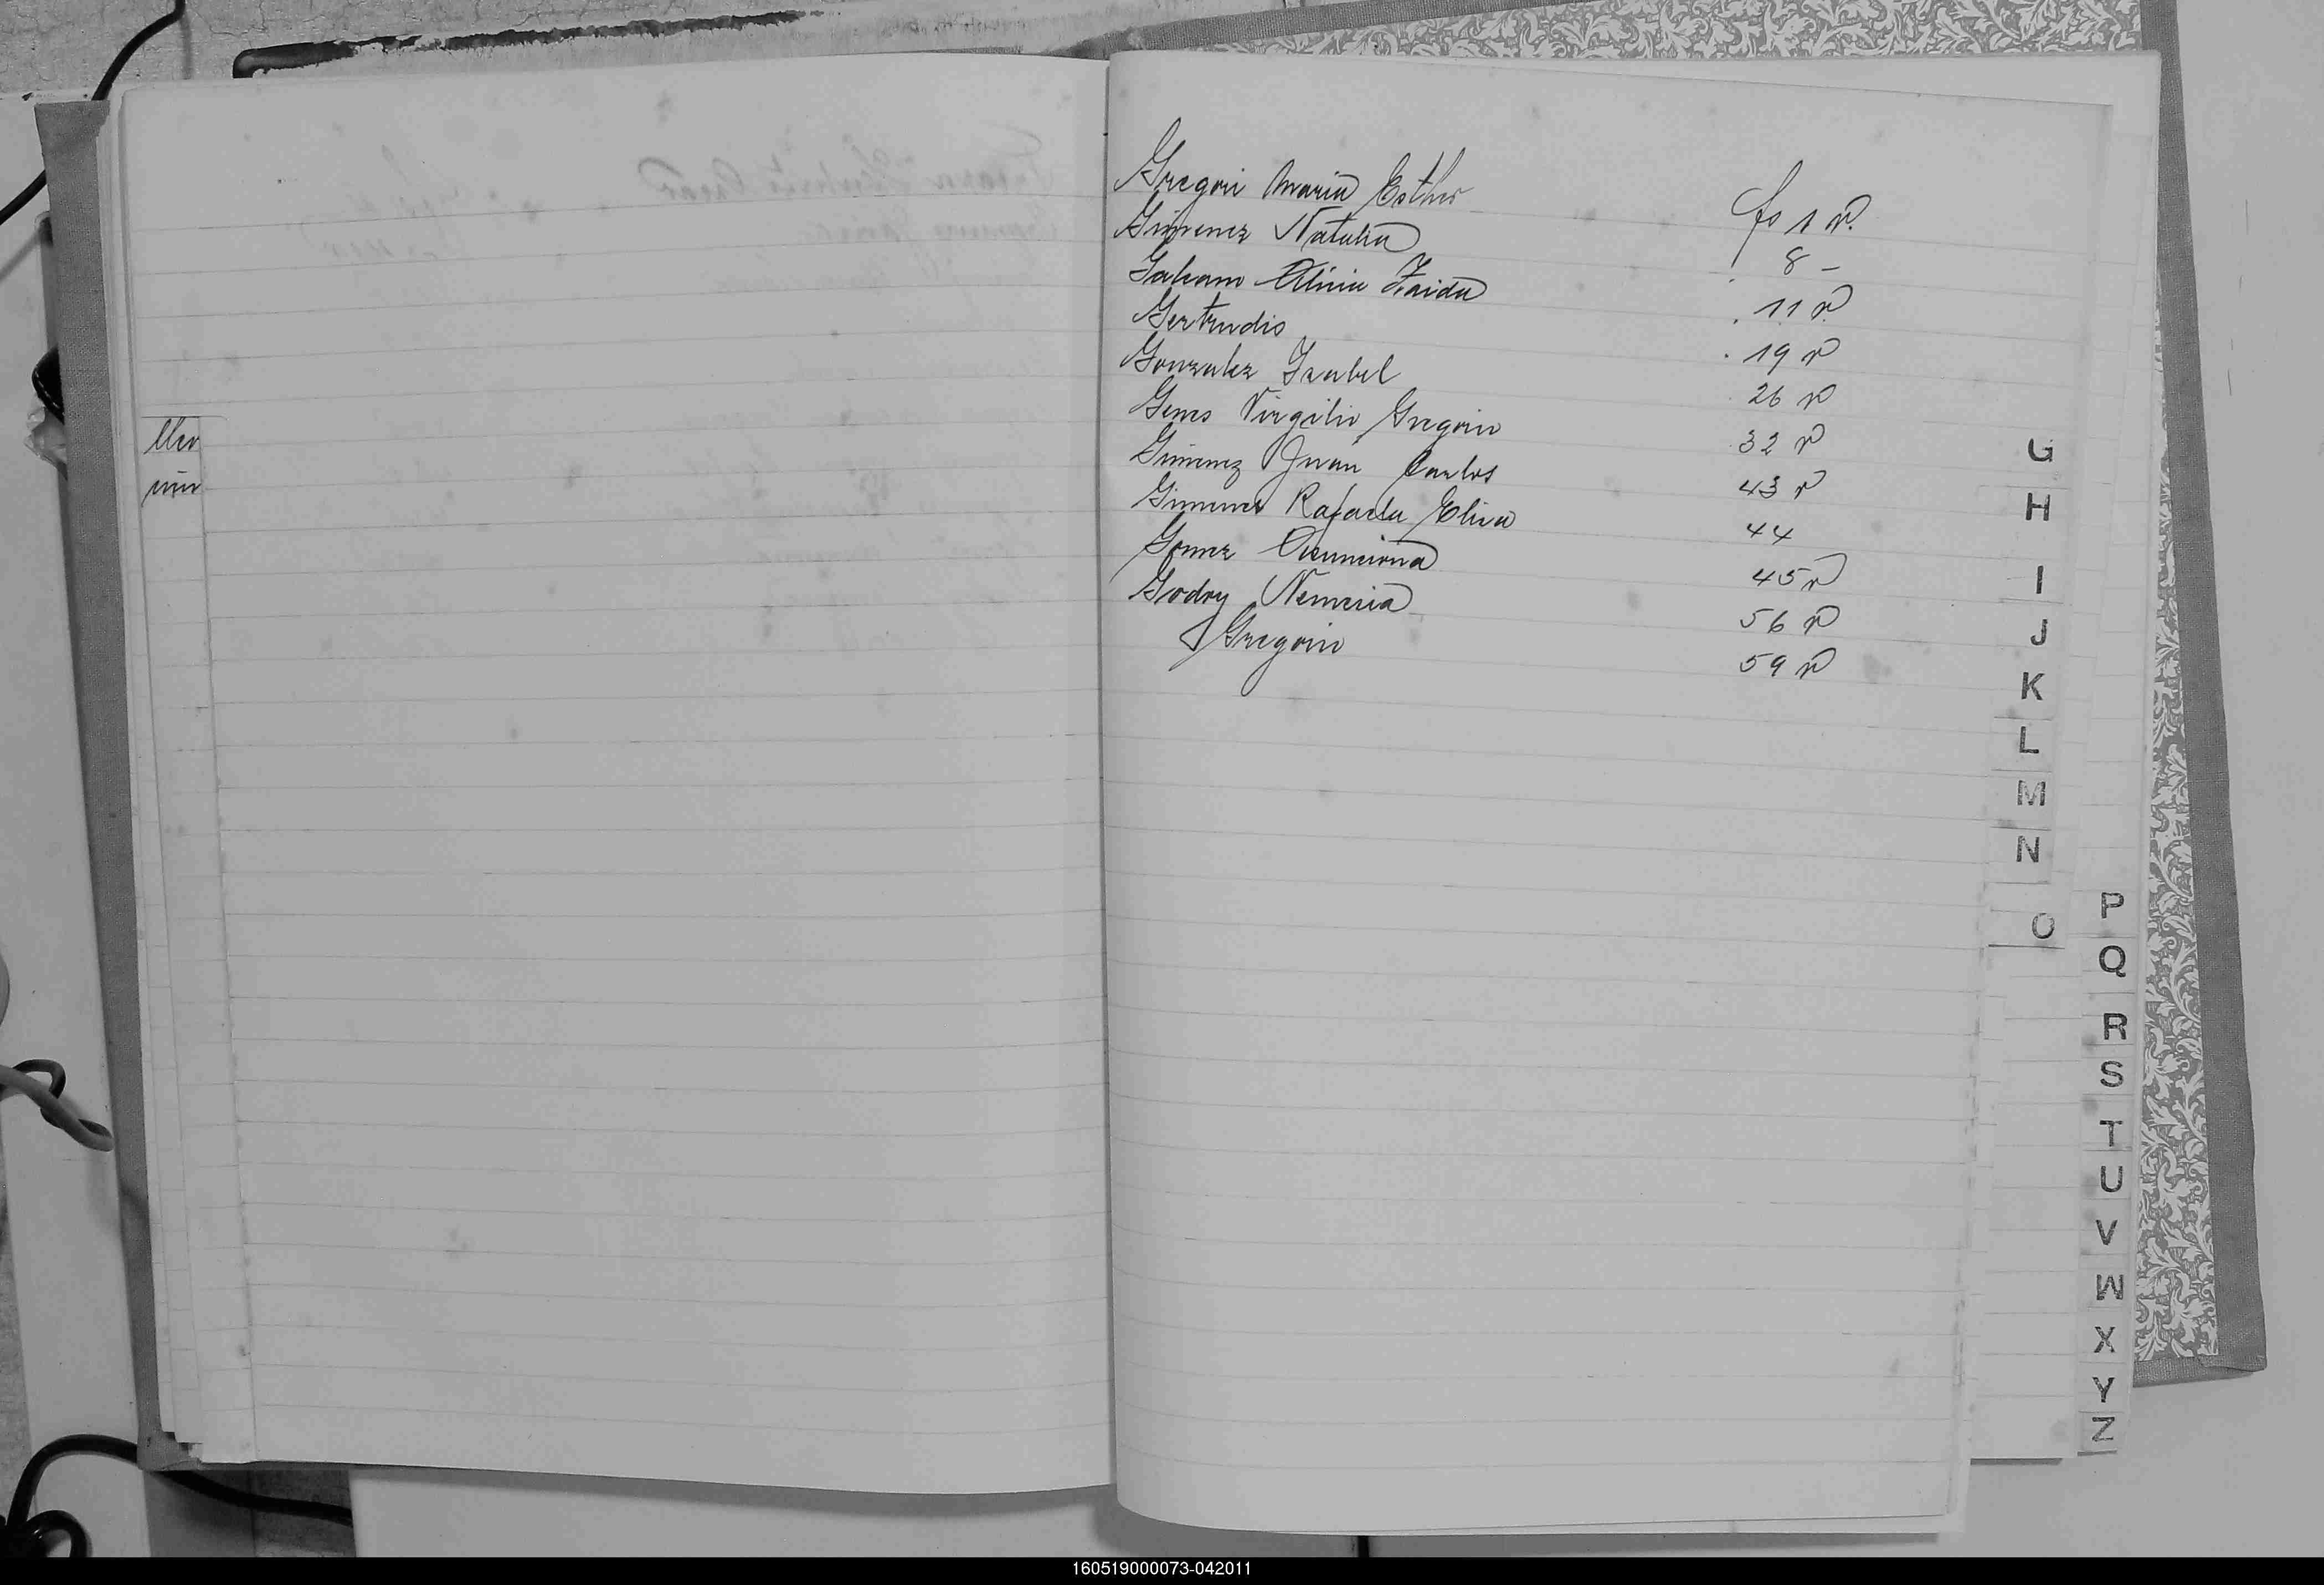 Gregori Maria Esther fs 1 v.
Gimenez Natalia 8 -
Galeano Alicia Zaida 11 v
Gertrudis 19 v
Gonzalez Isabel 26 v
Genes Virgilio Gregorio 32 v
Gimenez Juan Carlos 43 v
Gimenez Rafaela Elisa 44
Gomez Asunciona 45 v
Godoy Nemesia 56 v
Gregorio 59 v
G
H
I
J
K
L
M
N
O
P
Q
R
S
T
U
V
W
X
Y
Z
160519000073-042011